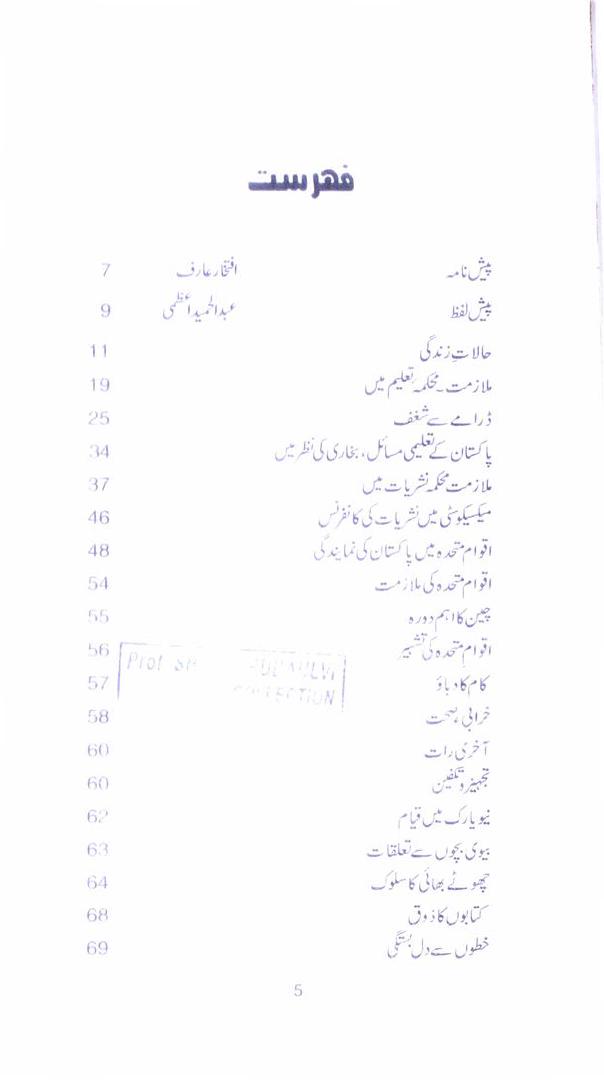 فہرست
پیش نامہ افتخار عارف 7
پیش لفظ عبدالحمید اعظمی 9
حالاتِ زندگی 11
ملازمت۔ محکمہ تعلیم میں 19
ڈرامے سے شغف 25
پاکستان کے تعلیمی مسائل، بخاری کی نظر میں 34
ملازمت محکمہ نشریات میں 37
میکسیکو سٹی میں نشریات کی کانفرنس 46
اقوام متحدہ میں پاکستان کی نمایندگی 48
اقوام متحدہ کی ملازمت 54
چین کا اہم دورہ 55
اقوام متحدہ کی تشہیر 56
Prof
COLLECTION
کام کا دباؤ 57
خرابی صحت 58
آخری رات 60
تجہیز و تکفین 60
نیو یارک میں قیام 62
بیوی بچوں سے تعلقات 63
چھوٹے بھائی کا سلوک 64
کتابوں کا ذوق 68
خطوں سے دل بستگی 69
5